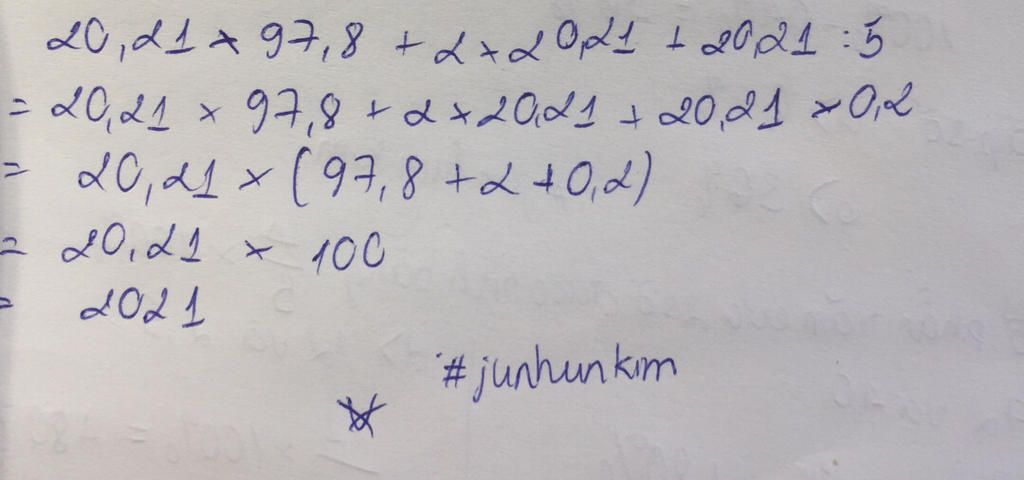 20,21 × 97,8 + 2 × 20,21 + 20,21 : 5
= 20,21 × 97,8 + 2 × 20,21 + 20,21 × 0,2
= 20,21 × (97,8 + 2 + 0,2)
= 20,21 × 100
= 2021
#junhunkim